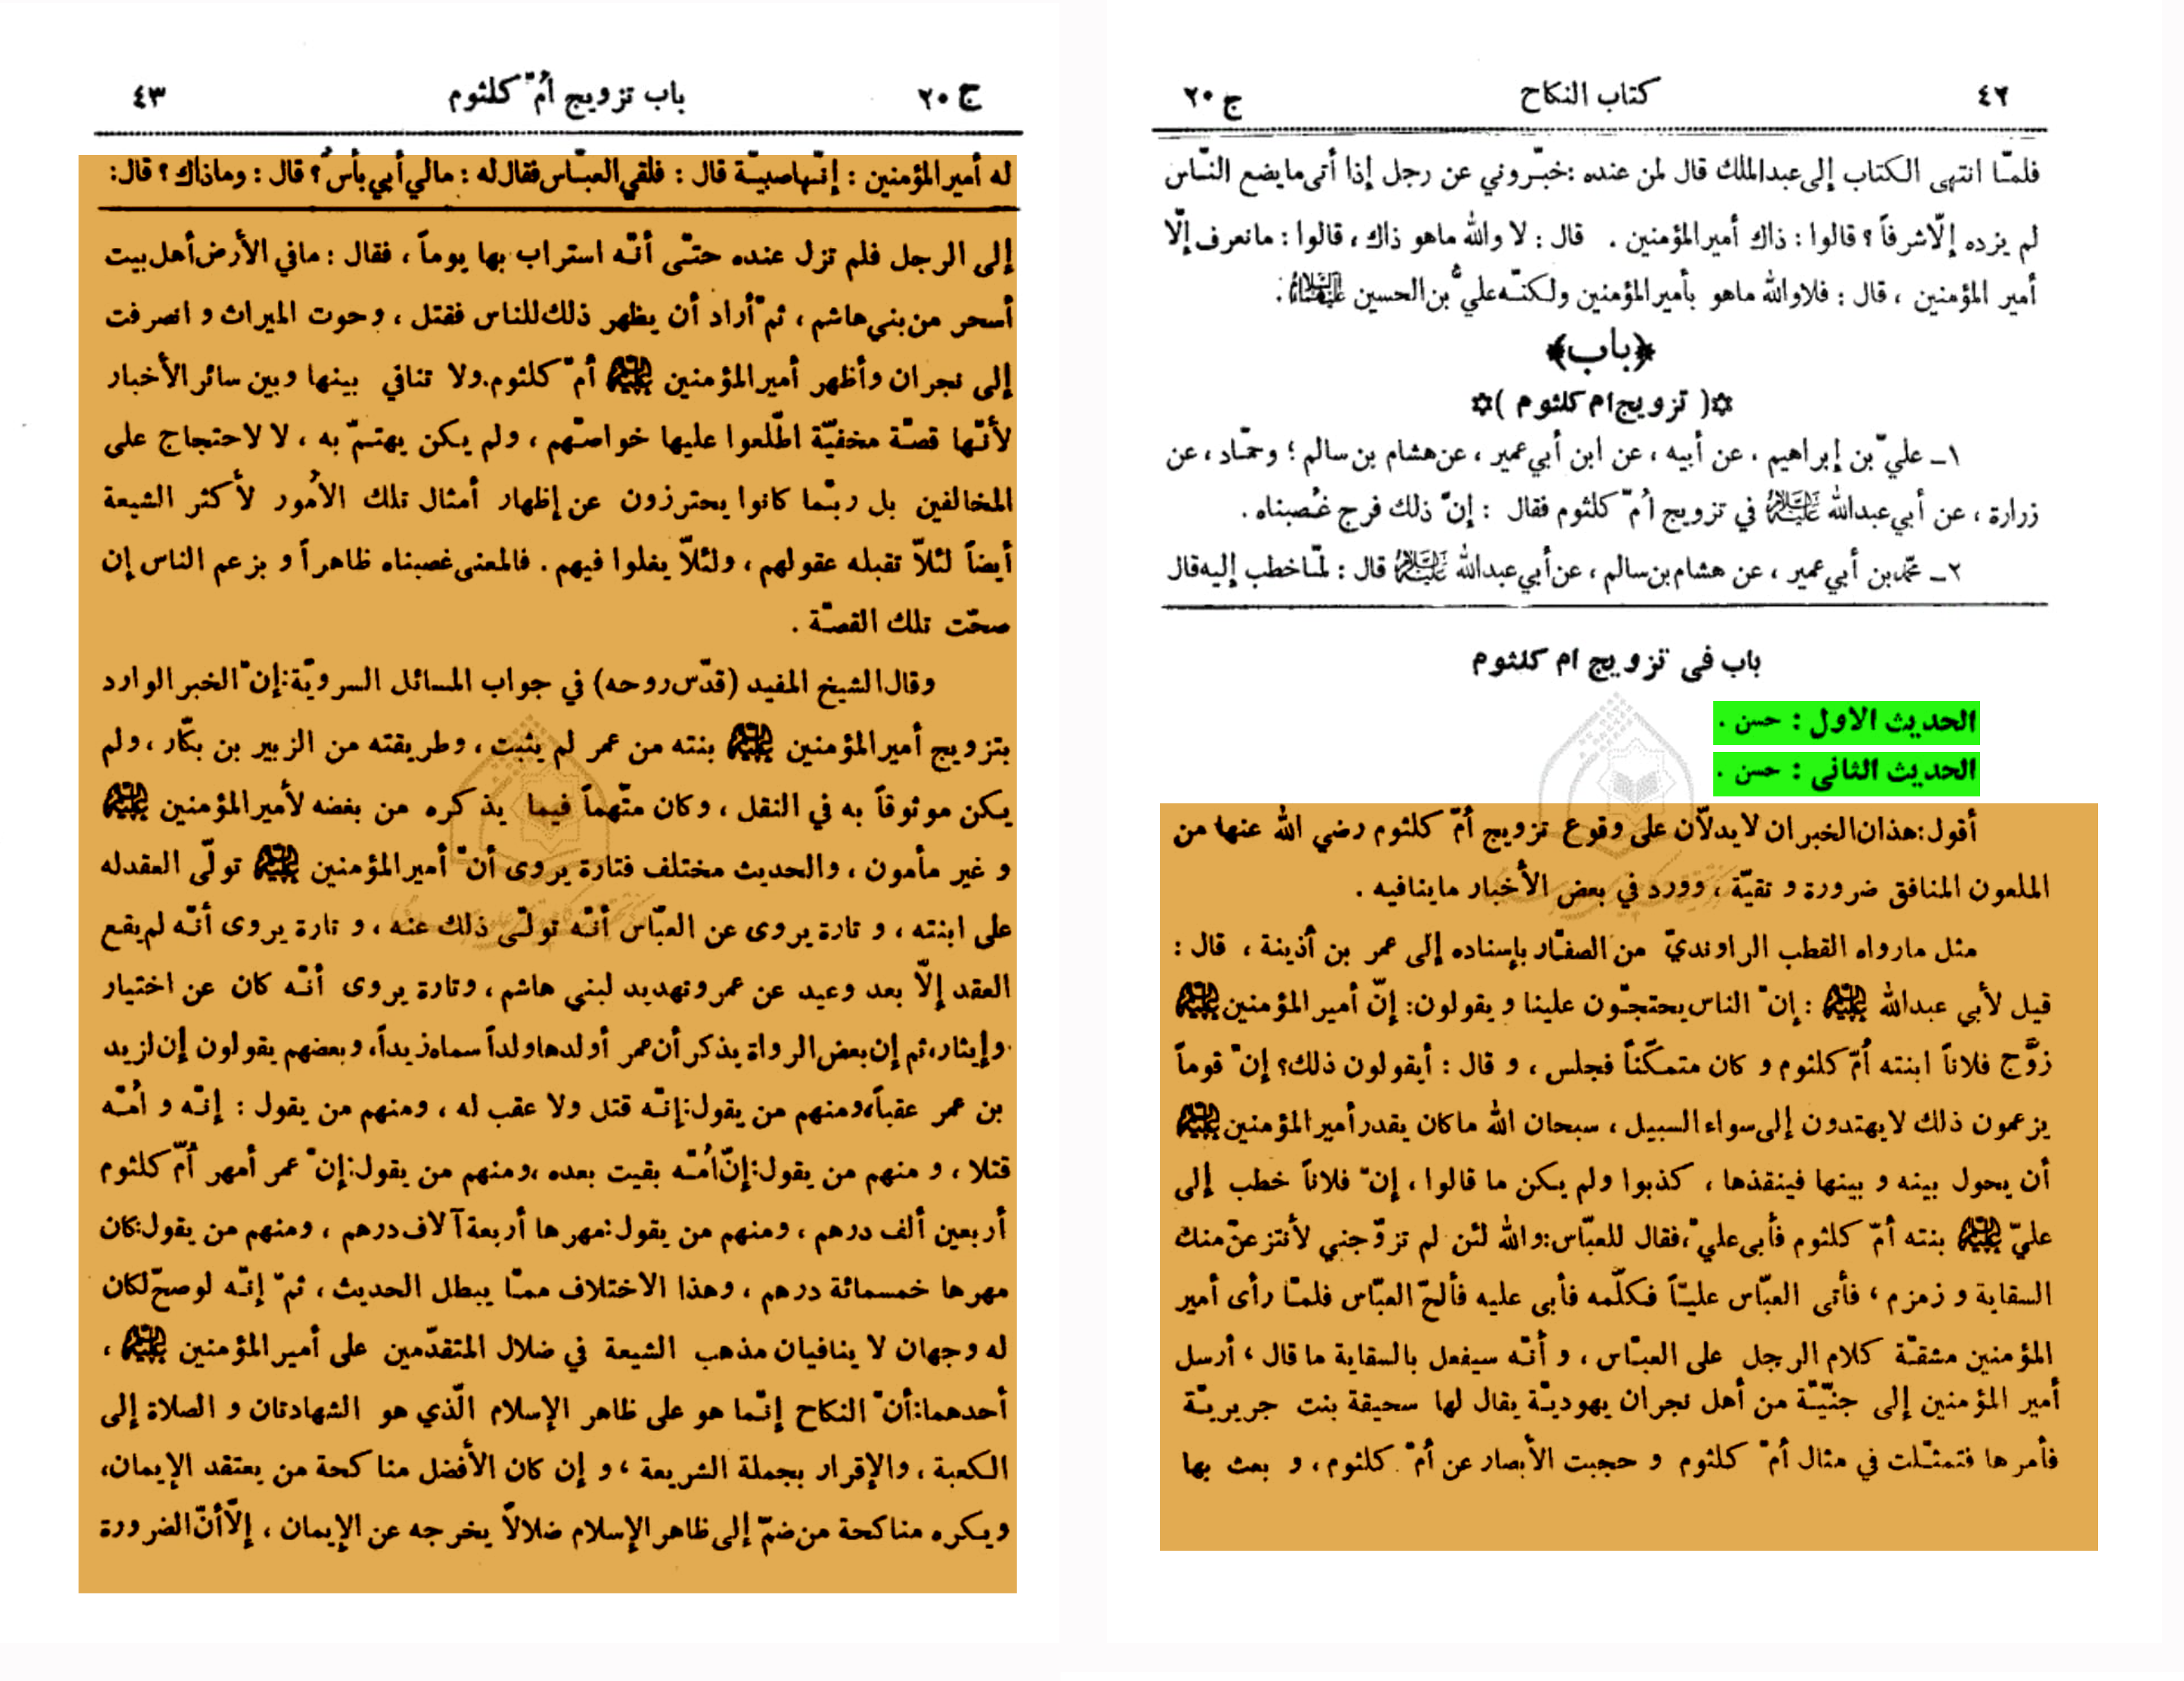 ٤٢ كتاب النكاح ج ٢٠
فلمّا انتهى الكتاب إلى عبدالملك قال لمن عنده : خبّروني عن رجل إذا أتى ما يضع النّاس
لم يزده إلّا شرفاً ؟ قالوا : ذاك أمير المؤمنين . قال : لا والله ما هو ذاك ، قالوا : ما نعرف إلّا
أمير المؤمنين ، قال : فلا والله ما هو بأمير المؤمنين ولكنّه عليُّ بن الحسين عليهما السلام .
﴿باب﴾
✡( تزويج ام كلثوم )✡
١ـ عليّ بن إبراهيم ، عن أبيه ، عن ابن أبي عمير ، عن هشام بن سالم ؛ وحمّاد ، عن
زرارة ، عن أبي عبدالله عليه السلام في تزويج اُمّ كلثوم فقال : إنّ ذلك فرج غُصبناه .
٢ـ محمّد بن أبي عمير ، عن هشام بن سالم ، عن أبي عبدالله عليه السلام قال : لمّا خطب إليه قال
باب فى تزويج ام كلثوم
الحديث الاول : حسن .
الحديث الثانى : حسن .
أقول : هذان الخبران لا يدلّان على وقوع تزويج أمّ كلثوم رضي الله عنها من
الملعون المنافق ضرورة و تقيّة ، وورد في بعض الأخبار ما ينافيه .
مثل ما رواه القطب الراونديّ من الصفّار بإسناده إلى عمر بن أذينة ، قال :
قيل لأبي عبدالله عليه السلام : إنّ الناس يحتجّون علينا و يقولون : إنّ أمير المؤمنين عليه السلام
زوَّج فلاناً ابنته أمّ كلثوم و كان متمكّناً فجلس ، و قال : أيقولون ذلك؟ إنّ قوماً
يزعمون ذلك لا يهتدون إلى سواء السبيل ، سبحان الله ما كان يقدر أمير المؤمنين عليه السلام
أن يحول بينه و بينها فينقذها ، كذبوا ولم يكن ما قالوا ، إنّ فلاناً خطب إلى
عليّ عليه السلام بنته أمّ كلثوم فأبى عليّ ، فقال للعبّاس : والله لئن لم تزوّجني لأنتزعنّ منك
السقاية و زمزم ، فأتى العبّاس عليّاً فكلّمه فأبى عليه فألحّ العبّاس فلمّا رأى أمير
المؤمنين مشقّة كلام الرجل على العبّاس ، و أنّه سيفعل بالسقاية ما قال ، أرسل
أمير المؤمنين إلى جنّيّة من أهل نجران يهوديّة يقال لها سحيقة بنت جريريّة
فأمرها فتمثّلت في مثال أمّ كلثوم و حجبت الأبصار عن أمّ كلثوم ، و بعث بها
ج ٢٠ باب تزويج اُمّ كلثوم ٤٣
له أمير المؤمنين : إنّها صبيّة قال : فلقي العبّاس فقال له : مالي أبي بأسٌ؟ قال : وماذاك ؟ قال :
إلى الرجل فلم تزل عنده حتّى أنّه استراب بها يوماً ، فقال : ما في الأرض أهل بيت
أسحر من بني هاشم ، ثمّ أراد أن يظهر ذلك للناس فقتل ، وحوت الميراث و انصرفت
إلى نجران وأظهر أمير المؤمنين عليه السلام أمّ كلثوم . ولا تنافي بينها وبين سائر الأخبار
لأنّها قصّة مخفيّة اطّلعوا عليها خواصّهم ، ولم يكن يهتمّ به ، لا لاحتجاج على
المخالفين بل ربّما كانوا يحترزون عن إظهار أمثال تلك الاُمور لأكثر الشيعة
أيضاً لئلّا تقبله عقولهم ، ولئلّا يغلوا فيهم . فالمعنى غصبناه ظاهراً و بزعم الناس إن
صحّت تلك القصّة .
وقال الشيخ المفيد (قدّس روحه) في جواب المسائل السرويّة : إنّ الخبر الوارد
بتزويج أمير المؤمنين عليه السلام بنته من عمر لم يثبت ، وطريقته من الزبير بن بكّار ، ولم
يكن موثوقاً به في النقل ، وكان متّهماً فيما يذكره من بغضه لأمير المؤمنين عليه السلام
و غير مأمون ، والحديث مختلف فتارة يروى أنّ أمير المؤمنين عليه السلام تولّى العقد له
على ابنته ، و تارة يروى عن العبّاس أنّه تولّى ذلك عنه ، و تارة يروى أنّه لم يقع
العقد إلّا بعد وعيد عن عمر وتهديد لبني هاشم ، وتارة يروى أنّه كان عن اختيار
وإيثار، ثم إن بعض الرواة يذكر أن عمر أولدها ولداً سماه زيداً، وبعضهم يقولون إن لزيد
بن عمر عقباً، ومنهم من يقول : إنّه قتل ولا عقب له ، ومنهم من يقول : إنّه و اُمّه
قتلا ، و منهم من يقول : إنّ اُمّه بقيت بعده ، ومنهم من يقول : إنّ عمر أمهر اُمّ كلثوم
أربعين ألف درهم ، ومنهم من يقول : مهرها أربعة آلاف درهم ، ومنهم من يقول : كان
مهرها خمسمائة درهم ، وهذا الاختلاف ممّا يبطل الحديث ، ثمّ إنّه لو صحّ لكان
له وجهان لا ينافيان مذهب الشيعة في ضلال المتقدّمين على أمير المؤمنين عليه السلام ،
أحدهما : أنّ النكاح إنّما هو على ظاهر الإسلام الّذي هو الشهادتان و الصلاة إلى
الكعبة ، والإقرار بجملة الشريعة ، و إن كان الأفضل مناكحة من يعتقد الإيمان،
ويكره مناكحة من ضمّ إلى ظاهر الإسلام ضلالاً يخرجه عن الإيمان ، إلّا أنّ الضرورة